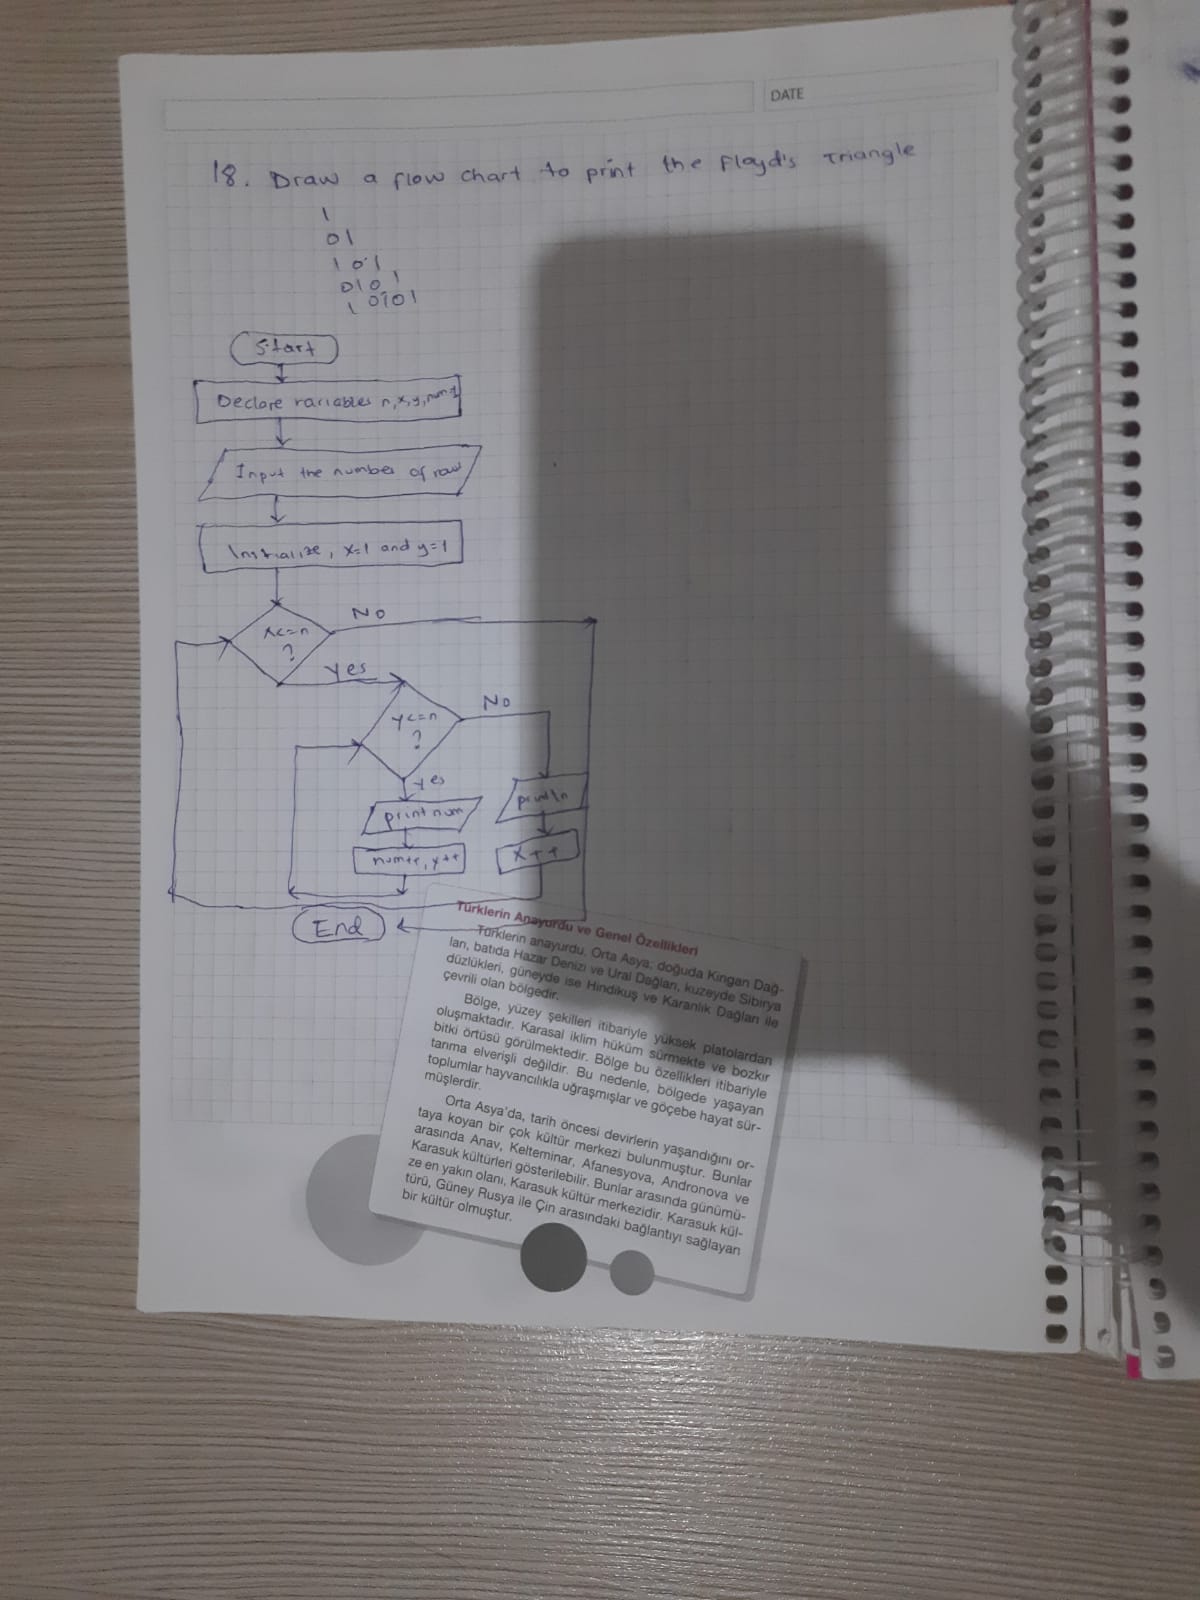 DATE
18. Draw a flow chart to print the Floyd's Triangle
1
01
101
0101
10101
Start
Declare variables n,x,y,num=1
Input the number of row
Initialize, x=1 and y=1
x<=n
?
No
Yes
y<=n
?
No
yes
print num
println
num++, y++
x++
End
Türklerin Anayurdu ve Genel Özellikleri
Türklerin anayurdu, Orta Asya; doğuda Kingan Dağ-
ları, batıda Hazar Denizi ve Ural Dağları, kuzeyde Sibirya
düzlükleri, güneyde ise Hindikuş ve Karanlık Dağları ile
çevrili olan bölgedir.
Bölge, yüzey şekilleri itibariyle yüksek platolardan
oluşmaktadır. Karasal iklim hüküm sürmekte ve bozkır
bitki örtüsü görülmektedir. Bölge bu özellikleri itibariyle
tarıma elverişli değildir. Bu nedenle, bölgede yaşayan
toplumlar hayvancılıkla uğraşmışlar ve göçebe hayat sür-
müşlerdir.
Orta Asya'da, tarih öncesi devirlerin yaşandığını or-
taya koyan bir çok kültür merkezi bulunmuştur. Bunlar
arasında Anav, Kelteminar, Afanesyova, Andronova ve
Karasuk kültürleri gösterilebilir. Bunlar arasında günümü-
ze en yakın olanı, Karasuk kültür merkezidir. Karasuk kül-
türü, Güney Rusya ile Çin arasındaki bağlantıyı sağlayan
bir kültür olmuştur.